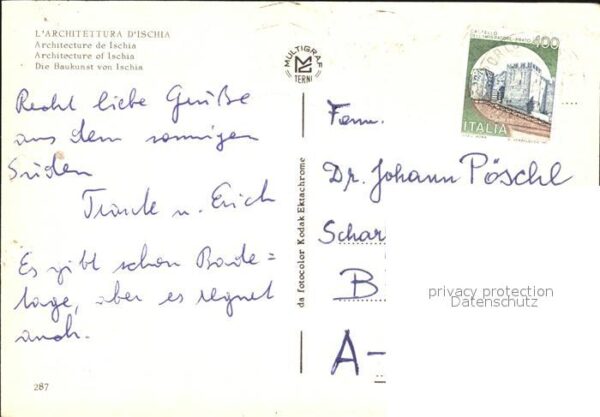 L'ARCHITETTURA D'ISCHIA
Architecture de Ischia
Architecture of Ischia
Die Baukunst von Ischia
Recht liebe Grüße
aus dem sonnigen
Süden
u. Erich
Es gibt schon Bade=
tage, aber es regnet
auch.
287
MULTIGRAF
TERNI
da fotocolor Kodak Ektachrome
CASTELLO
DELL'IMPERATORE - PRATO
400
ITALIA
Fam.
Dr. Johann Pöschl
Schar
B
A-
privacy protection
Datenschutz